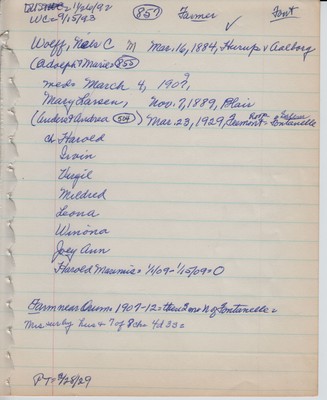 1/26/92
WC=9/15/93
857
Farmer
Font
Wolff, Nels C M Mar. 16, 1884, Hurup & Aalborg
(Adolph & Marie 855)
med = March 4, 1909,
Mary Larsen, Nov. 7, 1889, Blair
(Anders & Andrea 504) Mar. 23, 1929, Fremont = Fontanelle
ch Harold
Irvin
Virgil
Mildred
Leona
Winona
Joey Ann
Harold Maurice =
Farm near Orum = 1907-12 = then 2 mi N of Fontanelle =
Mrs surv by hus & 7 of 8 ch =
PT = 3/28/29